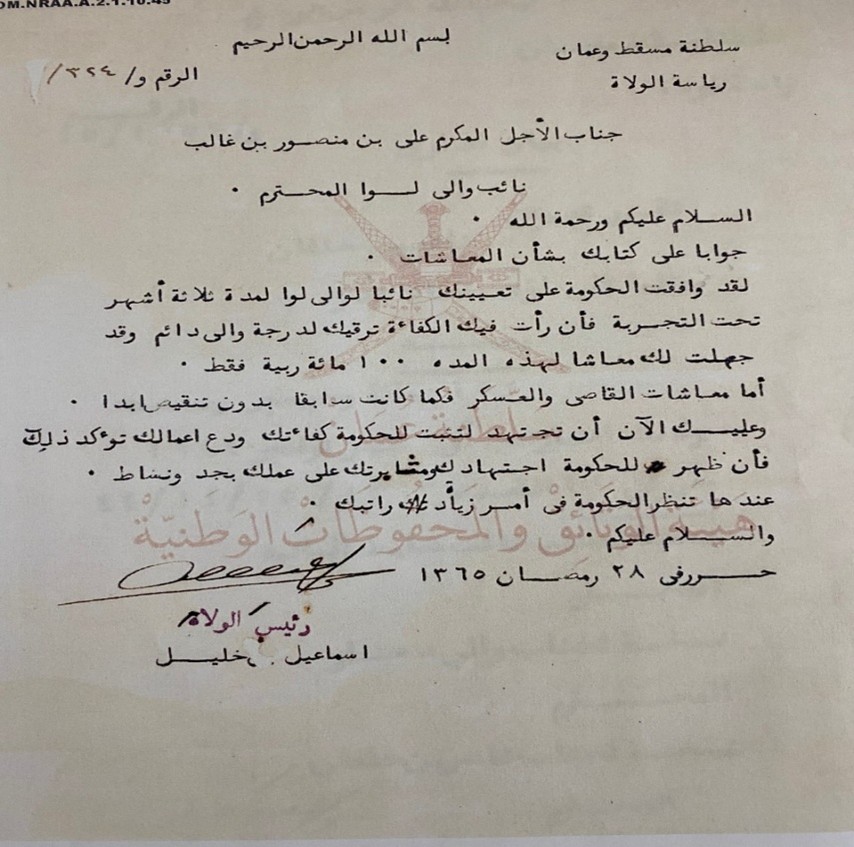 OM.NRAA.A.2.1.10.45
بسم الله الرحمن الرحيم
سلطنة مسقط وعمان
رياسة الولاة
الرقم و/ ٣٢٤/
جناب الأجل المكرم على بن منصور بن غالب
نائب والى لــوا المحــترم ٠
الســلام عليكم ورحمة الله ٠
جوابا على كتابك بشأن المعاشات ٠
لقد وافقت الحكومة على تعيينك نائبا لوالى لوا لمدة ثلاثة أشهر
تحت التجربة فأن رأت فيك الكفاءة ترقيك لدرجة والى دائم وقد
جهلت لك معاشا لهذه المده ١٠٠ مائة ربية فقط ٠
أما معاشات القاصى والعسكر فكما كانت سابقا بدون تنقيص ابدا ٠
وعليك الآن أن تجتهد لتثبت للحكومة كفاءتك ودع اعمالك توءكد ذلك
فأن ظهر للحكومة اجتهادك ومثابرتك على عملك بجد ونشاط ٠
عندها تنظر الحكومة فى أمر زيادة راتبك ٠
والســلام عليكم ٠
حــرر فى ٢٨ رمضــان ١٣٦٥
رئيس الولاة
اسماعيل خليــل
سلطنة عمان
هيئة الوثائق والمحفوظات الوطنية